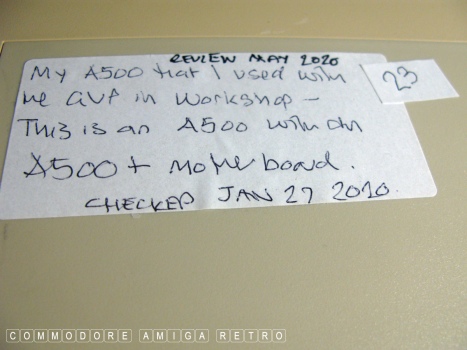 REVIEW MAY 2020
My A500 that I used with
me GVP in Workshop –
This is an A500 with an
A500+ Motherboard.
CHECKED JAN 27 2010.
23
COMMODORE AMIGA RETRO